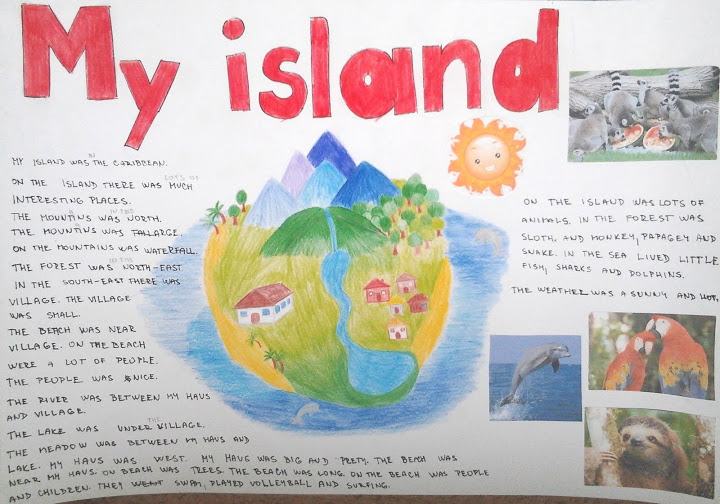 My island
MY ISLAND WAS IN THE CARIBBEAN.
ON THE ISLAND THERE WAS MUCH LOTS OF
INTERESTING PLACES.
THE MOUNTINS WAS IN THE NORTH.
THE MOUNTINS WAS TALL LARGE.
ON THE MOUNTAINS WAS WATERFALL.
THE FOREST WAS IN THE NORTH-EAST
IN THE SOUTH-EAST THERE WAS
VILLAGE. THE VILLAGE
WAS SMALL.
THE BEACH WAS NEAR
VILLAGE. ON THE BEACH
WERE A LOT OF PEOPLE.
THE PEOPLE WAS NICE.
THE RIVER WAS BETWEEN MY HAUS
AND VILLAGE.
THE LAKE WAS UNDER THE VILLAGE.
THE MEADOW WAS BETWEEN MY HAUS AND
LAKE. MY HAUS WAS WEST. MY HAUS WAS BIG AND PRETY. THE BEACH WAS
NEAR MY HAUS. ON BEACH WAS TREES. THE BEACH WAS LONG. ON THE BEACH WAS PEOPLE
AND CHILDREN. THEY WENT SWAM, PLAYED VOLLEYBALL AND SURFING.
ON THE ISLAND WAS LOTS OF
ANIMALS. IN THE FOREST WAS
SLOTH. AND MONKEY, PAPAGEY AND
SNAKE. IN THE SEA LIVED LITTLE
FISH, SHARKS AND DOLPHINS.
THE WEATHER WAS A SUNNY AND HOT.